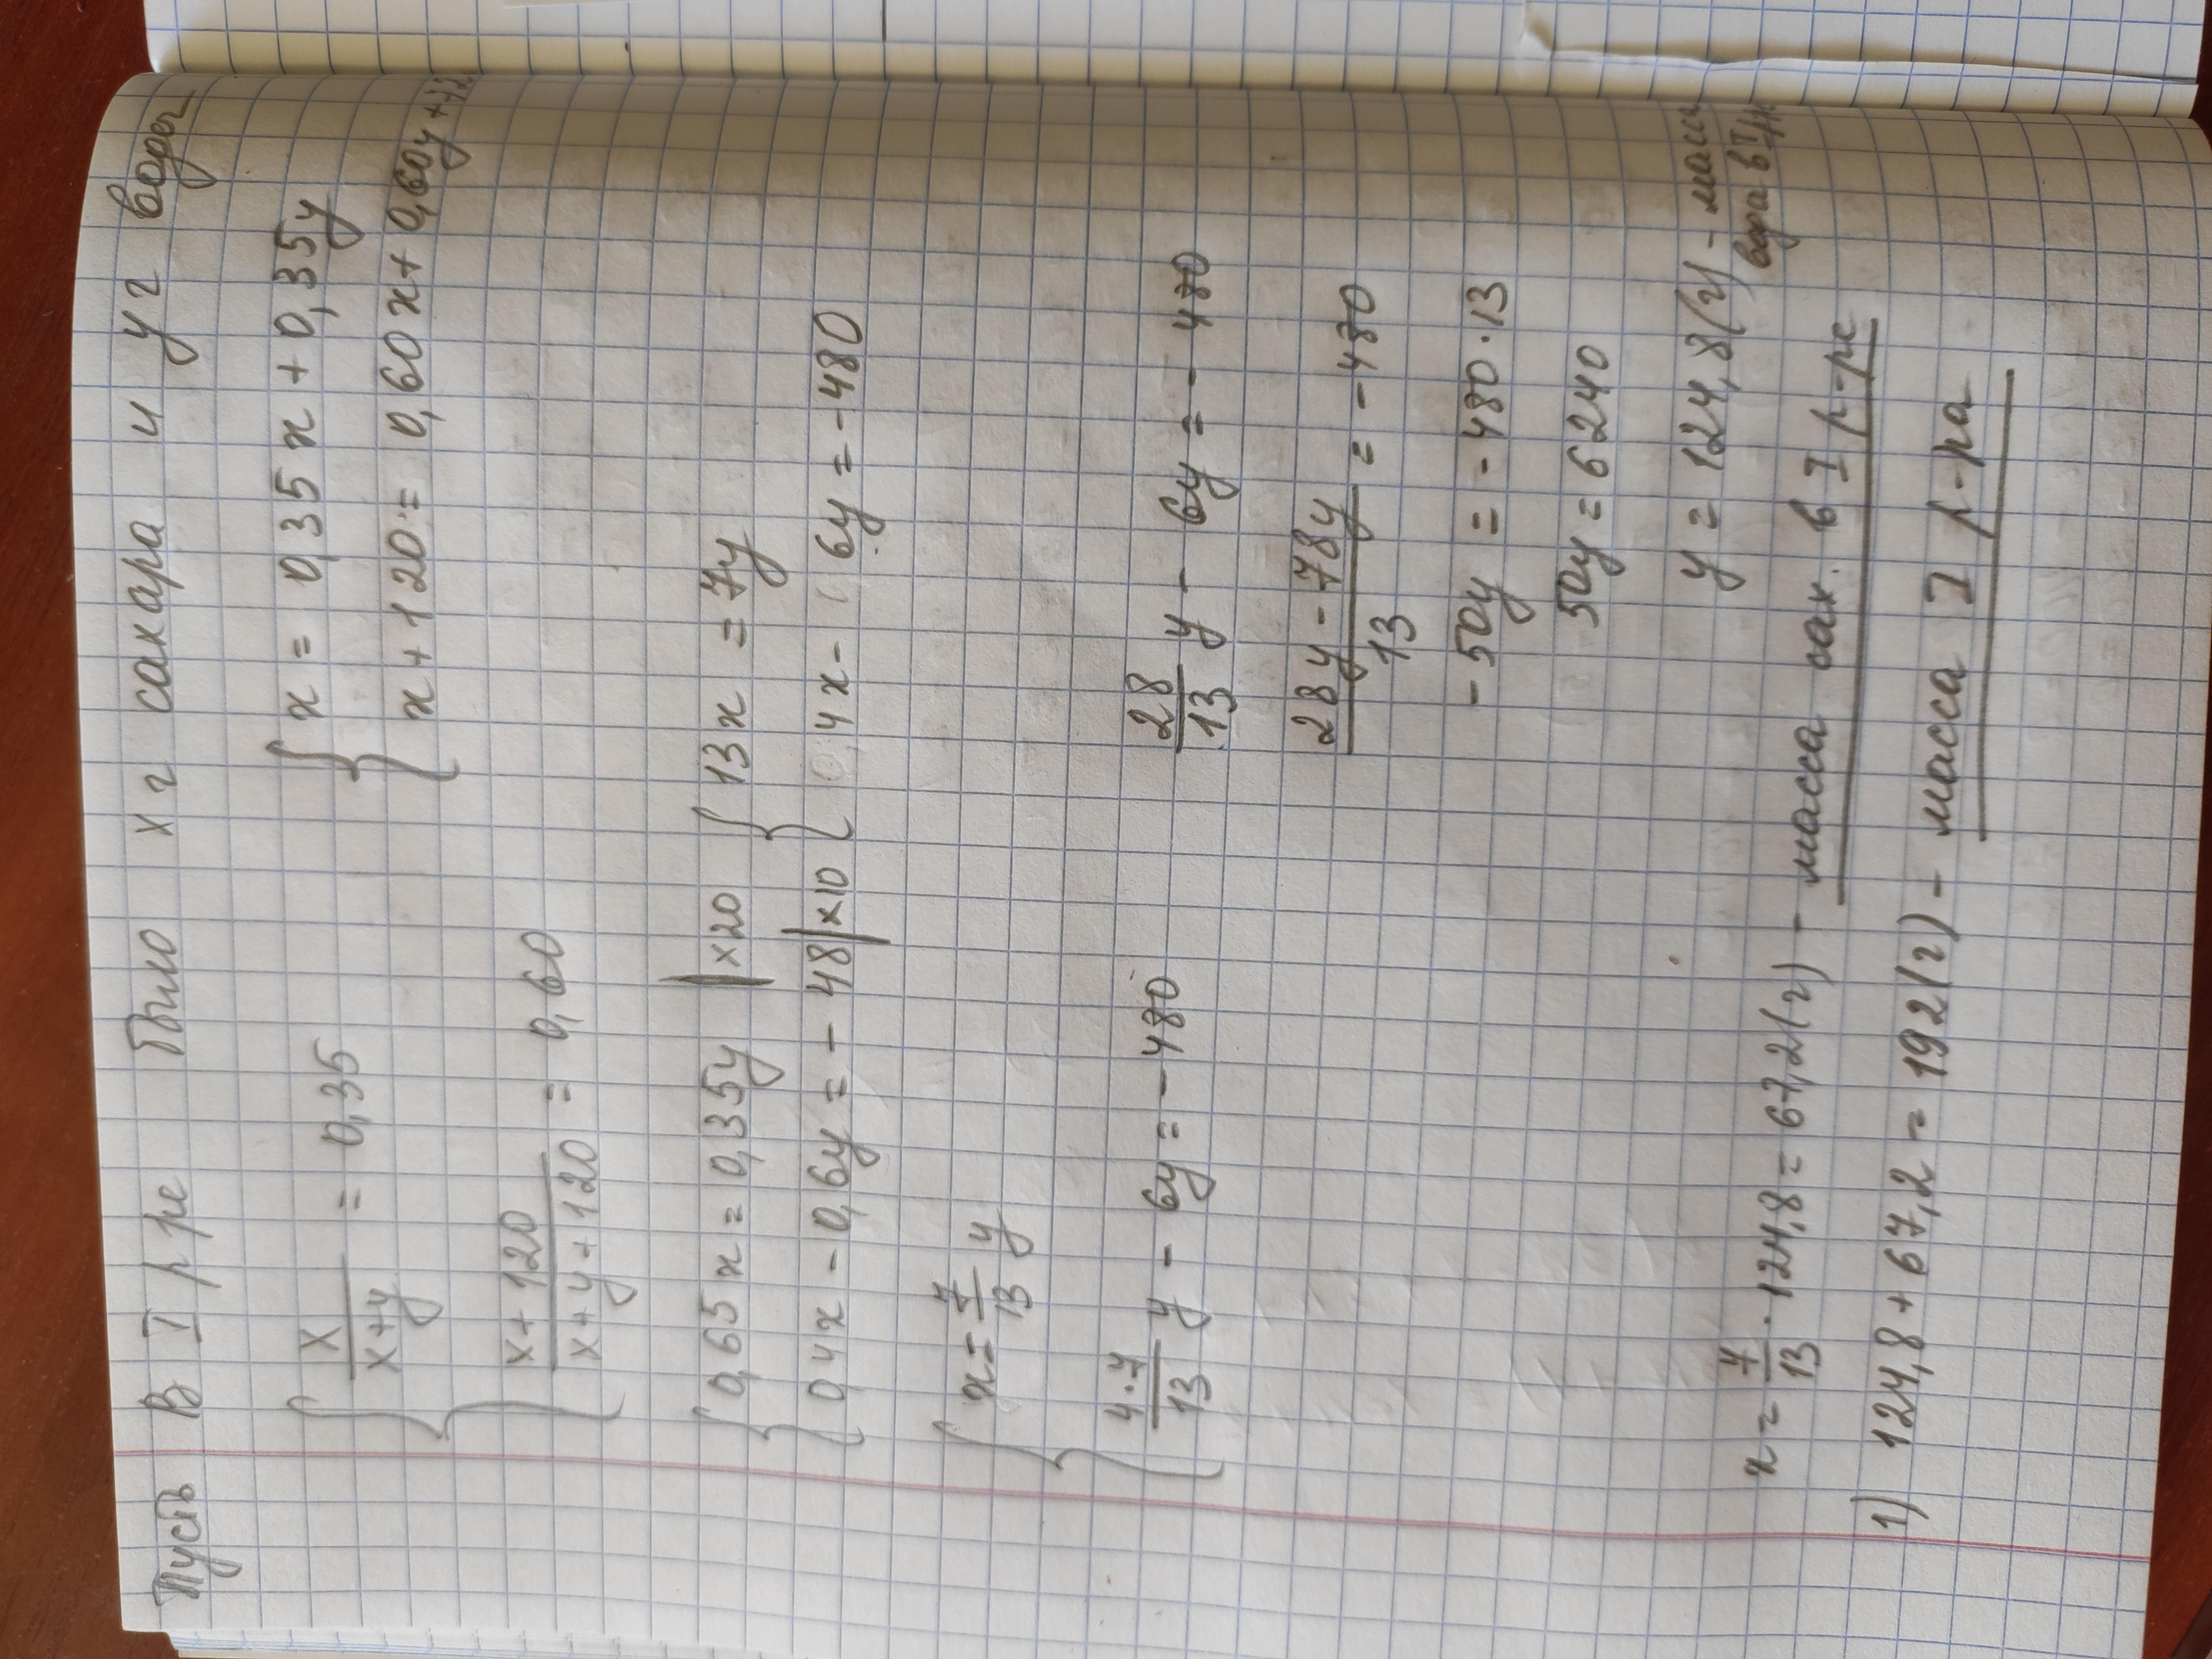 Пусть в I р-ре было x г сахара и y г воды
{ x/(x+y) = 0,35
{ (x+120)/(x+y+120) = 0,60
{ x = 0,35x + 0,35y
{ x+120 = 0,60x + 0,60y + 72
{ 0,65x = 0,35y | ×20
{ 0,4x - 0,6y = -48 | ×10
{ 13x = 7y
{ 4x - 6y = -480
{ x = 7/13 y
{ 4·7/13 y - 6y = -480
28/13 y - 6y = -480
(28y - 78y)/13 = -480
-50y = -480·13
50y = 6240
y = 124,8(г) - масса
вода в I р-ре
x = 7/13 · 124,8 = 67,2(г) - масса сах. в I р-ре
1) 124,8 + 67,2 = 192(г) - масса I р-ра